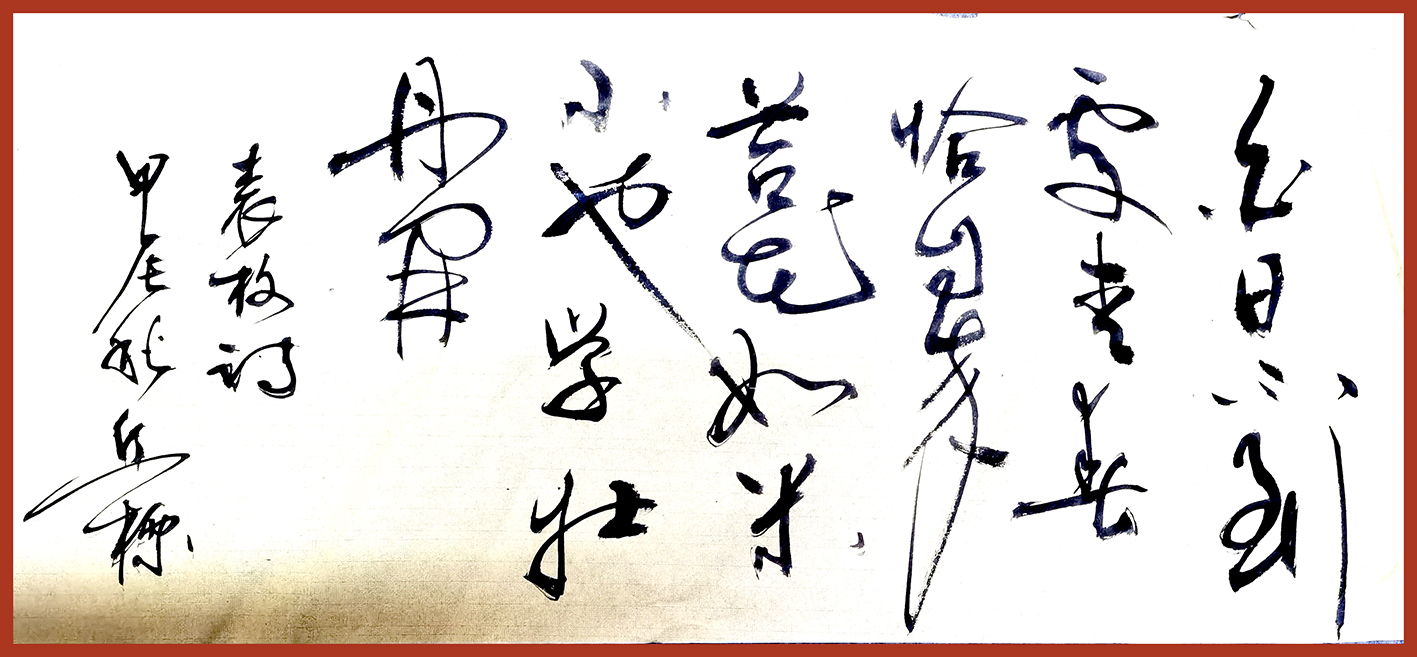 白日不到
处青春
恰自来
苔花如米
小也学牡
丹开
袁枚诗
甲辰秋岳